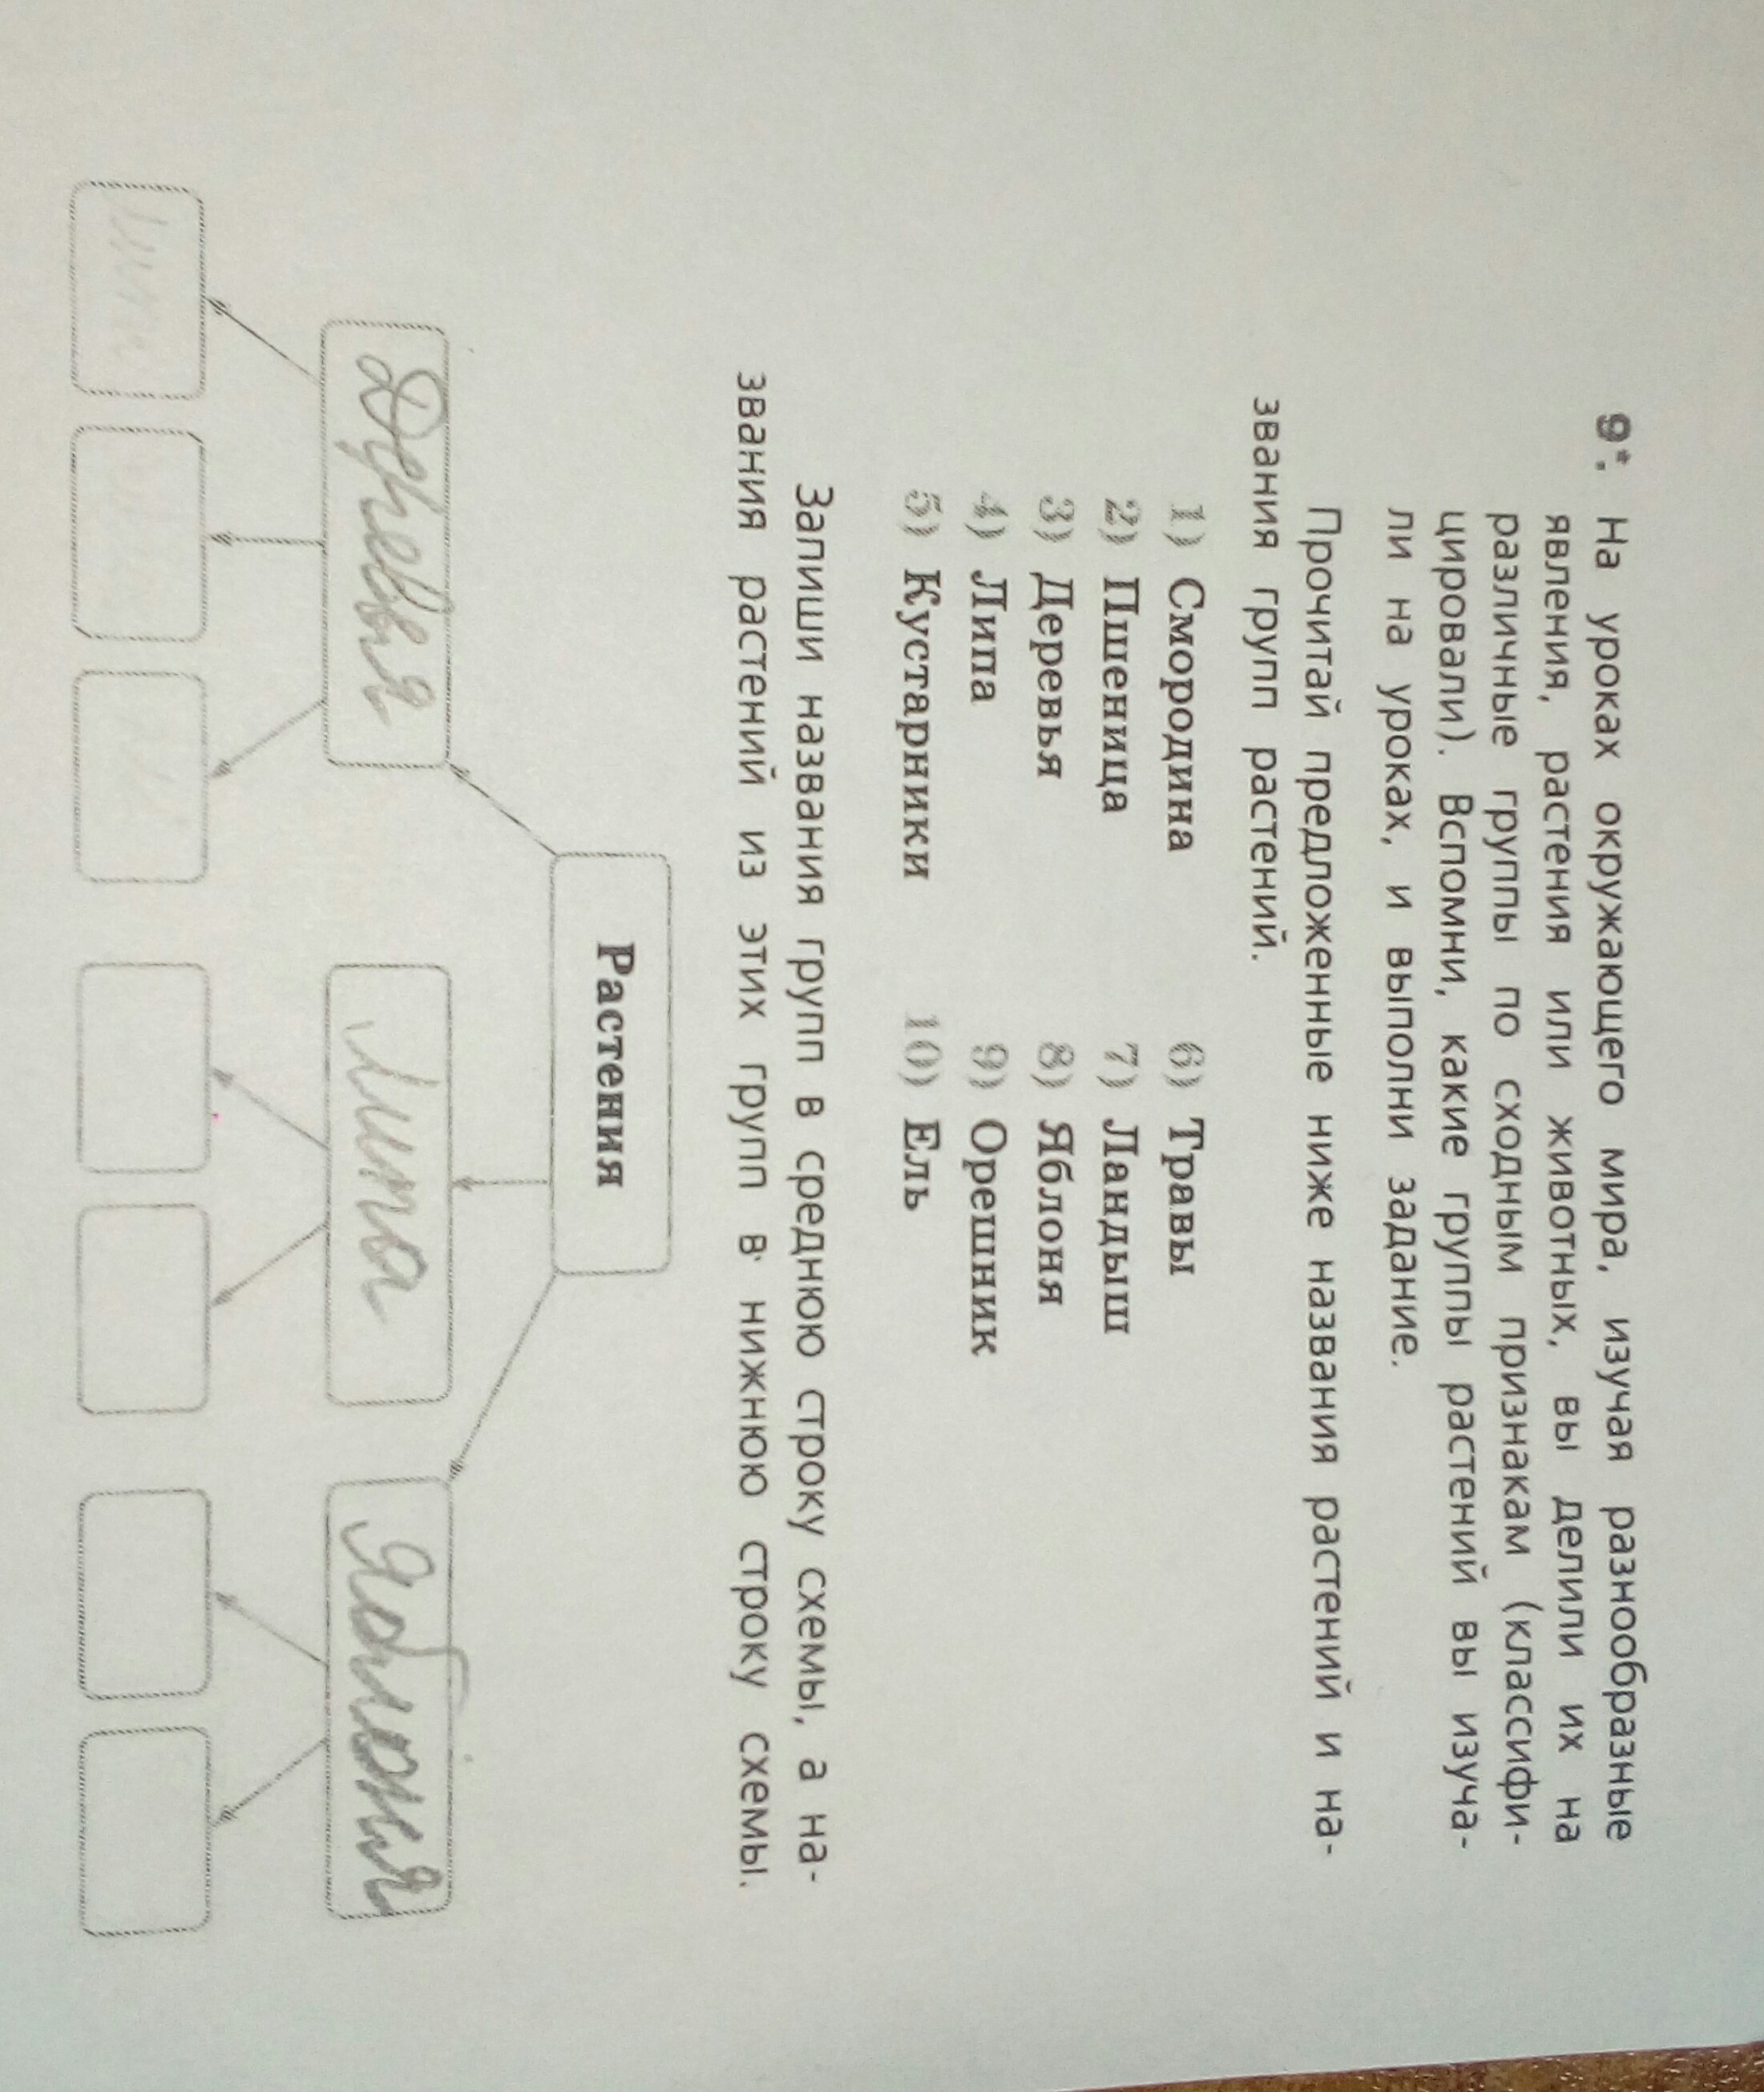 9*. На уроках окружающего мира, изучая разнообразные
явления, растения или животных, вы делили их на
различные группы по сходным признакам (классифи-
цировали). Вспомни, какие группы растений вы изуча-
ли на уроках, и выполни задание.
Прочитай предложенные ниже названия растений и на-
звания групп растений.
1) Смородина
2) Пшеница
3) Деревья
4) Липа
5) Кустарники
6) Травы
7) Ландыш
8) Яблоня
9) Орешник
10) Ель
Запиши названия групп в среднюю строку схемы, а на-
звания растений из этих групп в нижнюю строку схемы.
Растения
Деревья Липа Яблоня